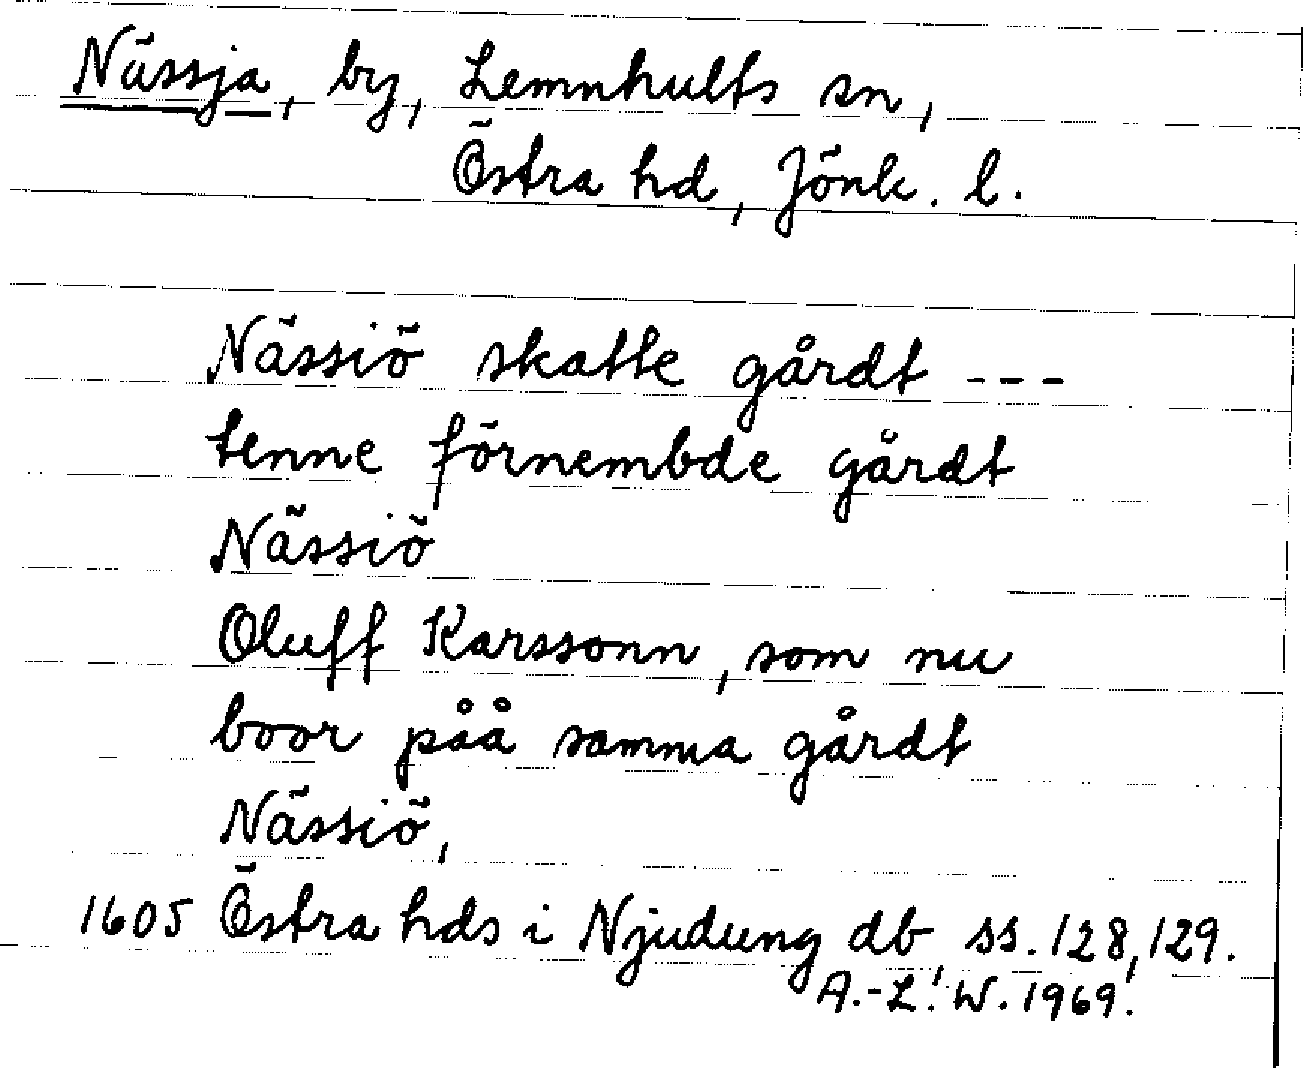 Nässja, by, Lemnhults sn,
Östra hd, Jönk. l.
Nässiö skatte gårdt ---
tenne förnembde gårdt
Nässiö
Oluff Karssonn, som nu
boor påå samma gårdt
Nässiö,
1605 Östra hds i Njudung db, ss. 128, 129.
A.-L. W. 1969.